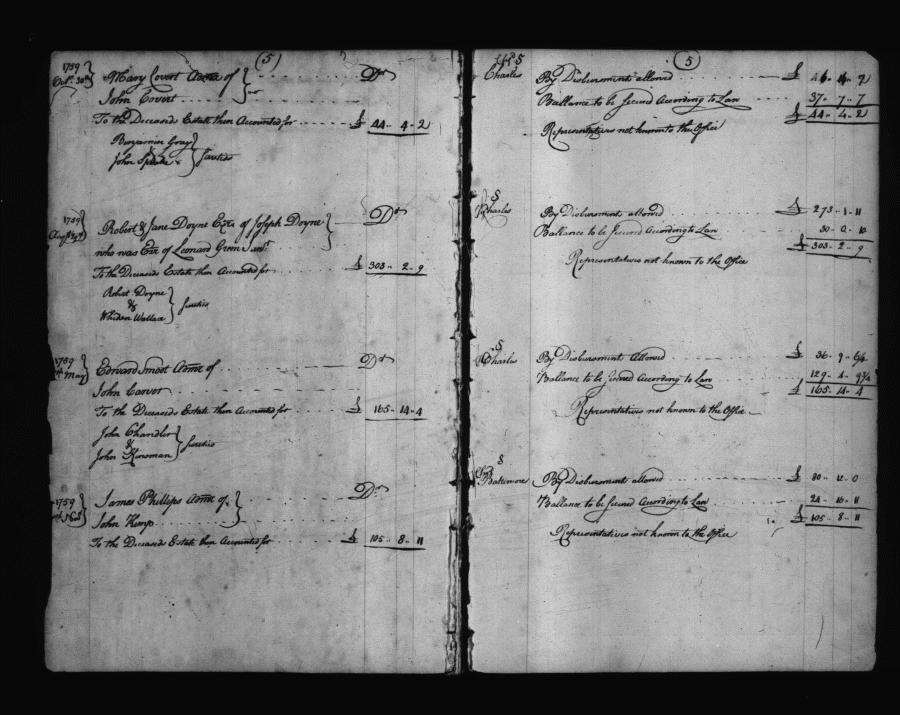 (5)
1759
Octr. 30th
Mary Covert Admx of
Dr
John Covert
To the Deceased Estate then Accounted for £ 44 - 4 - 2
Benjamin Gray
John Speake
Sureties
1759
Robert & Jane Doyne Exrs of Joseph Doyne
Dr
who was Exr of Leonard Green
To the Deceased Estate then Accounted for £ 303 - 2 - 9
Robert Doyne
&
Wallace
Sureties
1759
May
Edward Smoot Admr of
Dr
John Carver
To the Deceaseds Estate then Accounted for £ 165 - 14 - 4
John Chandler
&
John Kinsman
Sureties
1759
James Phillips Admr of
Dr
John Kemp
To the Deceaseds Estate then Accounted for £ 105 - 8 - 11
(5)
Charles
By Disbursments allowed £
Ballance to be Secured According to Law 37 - 7 - 7
£ 44 - 4 - 2
Representatives not known to the Office
Charles
By Disbursments allowed £ 273 - 1 - 11
Ballance to be Secured According to Law 30 - 0 - 10
£ 303 - 2 - 9
Representatives not known to the Office
Charles
By Disbursments Allowed £ 36 - 9 - 6¼
Ballance to be Secured According to Law 129 - 4 - 9¾
£ 165 - 14 - 4
Representatives not known to the Office
Baltimore
By Disbursments allowed £ 80 - 12 - 0
Ballance to be Secured According to Law 24 - 16 - 11
£ 105 - 8 - 11
Representatives not known to the Office